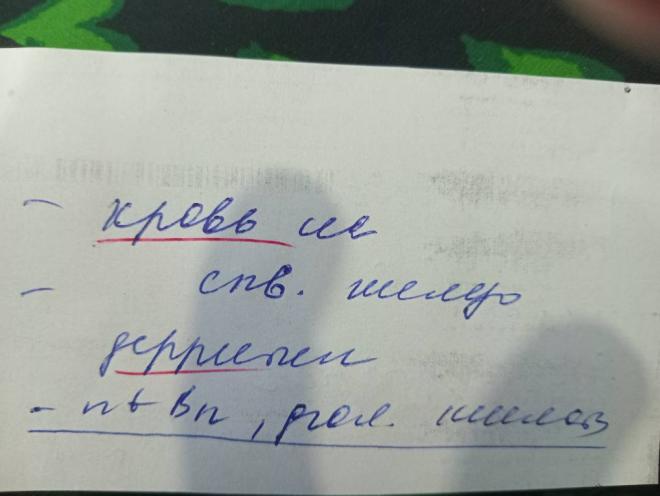 – кровь на
– сыв. железо
ферритин
- В12, фол. кислота